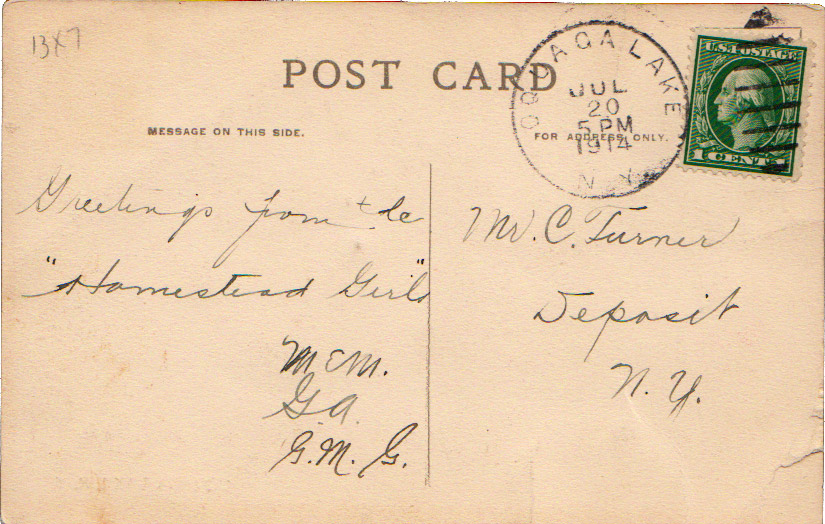 13x7
POST CARD
MESSAGE ON THIS SIDE.
FOR ADDRESS ONLY.
OQUAGA LAKE
JUL
20
5 PM
1914
N.Y.
U.S. POSTAGE
1 CENT 1
Greetings from the
"Homestead Girls"
M E M.
G A.
G. M. G.
Mr. C. Turner
Deposit
N. Y.